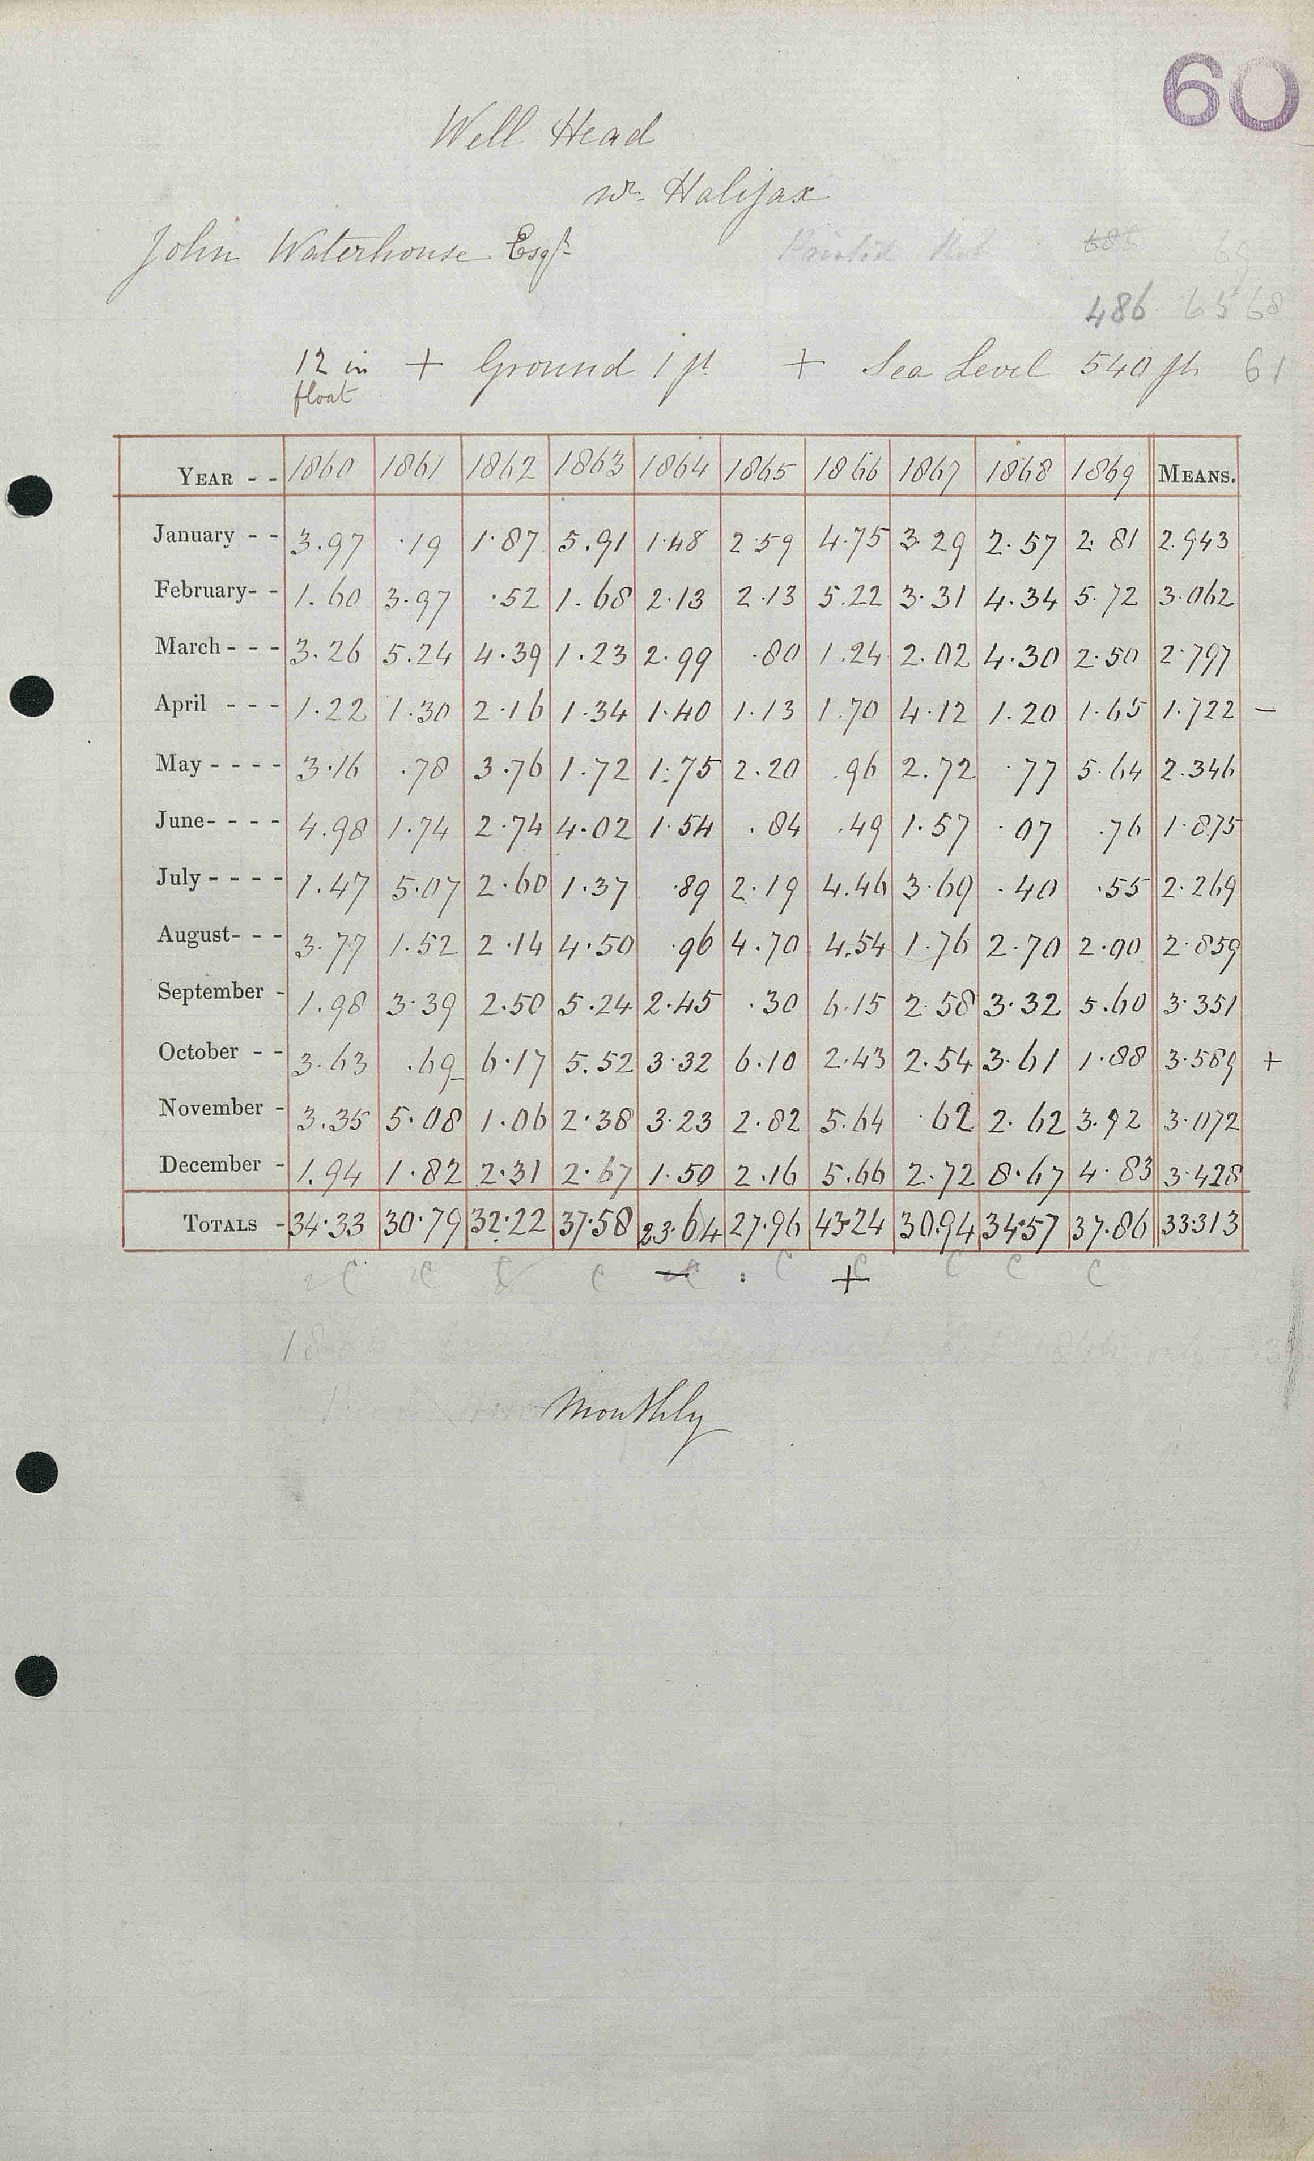 60
Well Head
nr. Halifax
John Waterhouse Esqr.
486 65 68
12 in float + Ground 1 ft + Sea Level 540 ft 61
YEAR - - 1860 1861 1862 1863 1864 1865 1866 1867 1868 1869 MEANS.
January - - 3.97 .19 1.87 5.91 1.48 2.59 4.75 3.29 2.57 2.81 2.943
February- - 1.60 3.97 .52 1.68 2.13 2.13 5.22 3.31 4.34 5.72 3.062
March - - - 3.26 5.24 4.39 1.23 2.99 .80 1.24 2.02 4.30 2.50 2.797
April - - - 1.22 1.30 2.16 1.34 1.40 1.13 1.70 4.12 1.20 1.65 1.722 -
May - - - - 3.16 .78 3.76 1.72 1.75 2.20 .96 2.72 .77 5.64 2.346
June- - - - 4.98 1.74 2.74 4.02 1.54 .84 .49 1.57 .07 .76 1.875
July - - - - 1.47 5.07 2.60 1.37 .89 2.19 4.46 3.69 .40 .55 2.269
August- - - 3.77 1.52 2.14 4.50 .96 4.70 4.54 1.76 2.70 2.00 2.859
September - 1.98 3.39 2.50 5.24 2.45 .30 6.15 2.58 3.32 5.60 3.351
October - - 3.63 .69 6.17 5.52 3.32 6.10 2.43 2.54 3.61 1.88 3.589 +
November - 3.35 5.08 1.06 2.38 3.23 2.82 5.64 .62 2.62 3.92 3.072
December - 1.94 1.82 2.31 2.67 1.50 2.16 5.66 2.72 8.67 4.83 3.428
TOTALS - 34.33 30.79 32.22 37.58 23.64 27.96 43.24 30.94 34.57 37.86 33.313
C C C C - C C + C C C C
Monthly